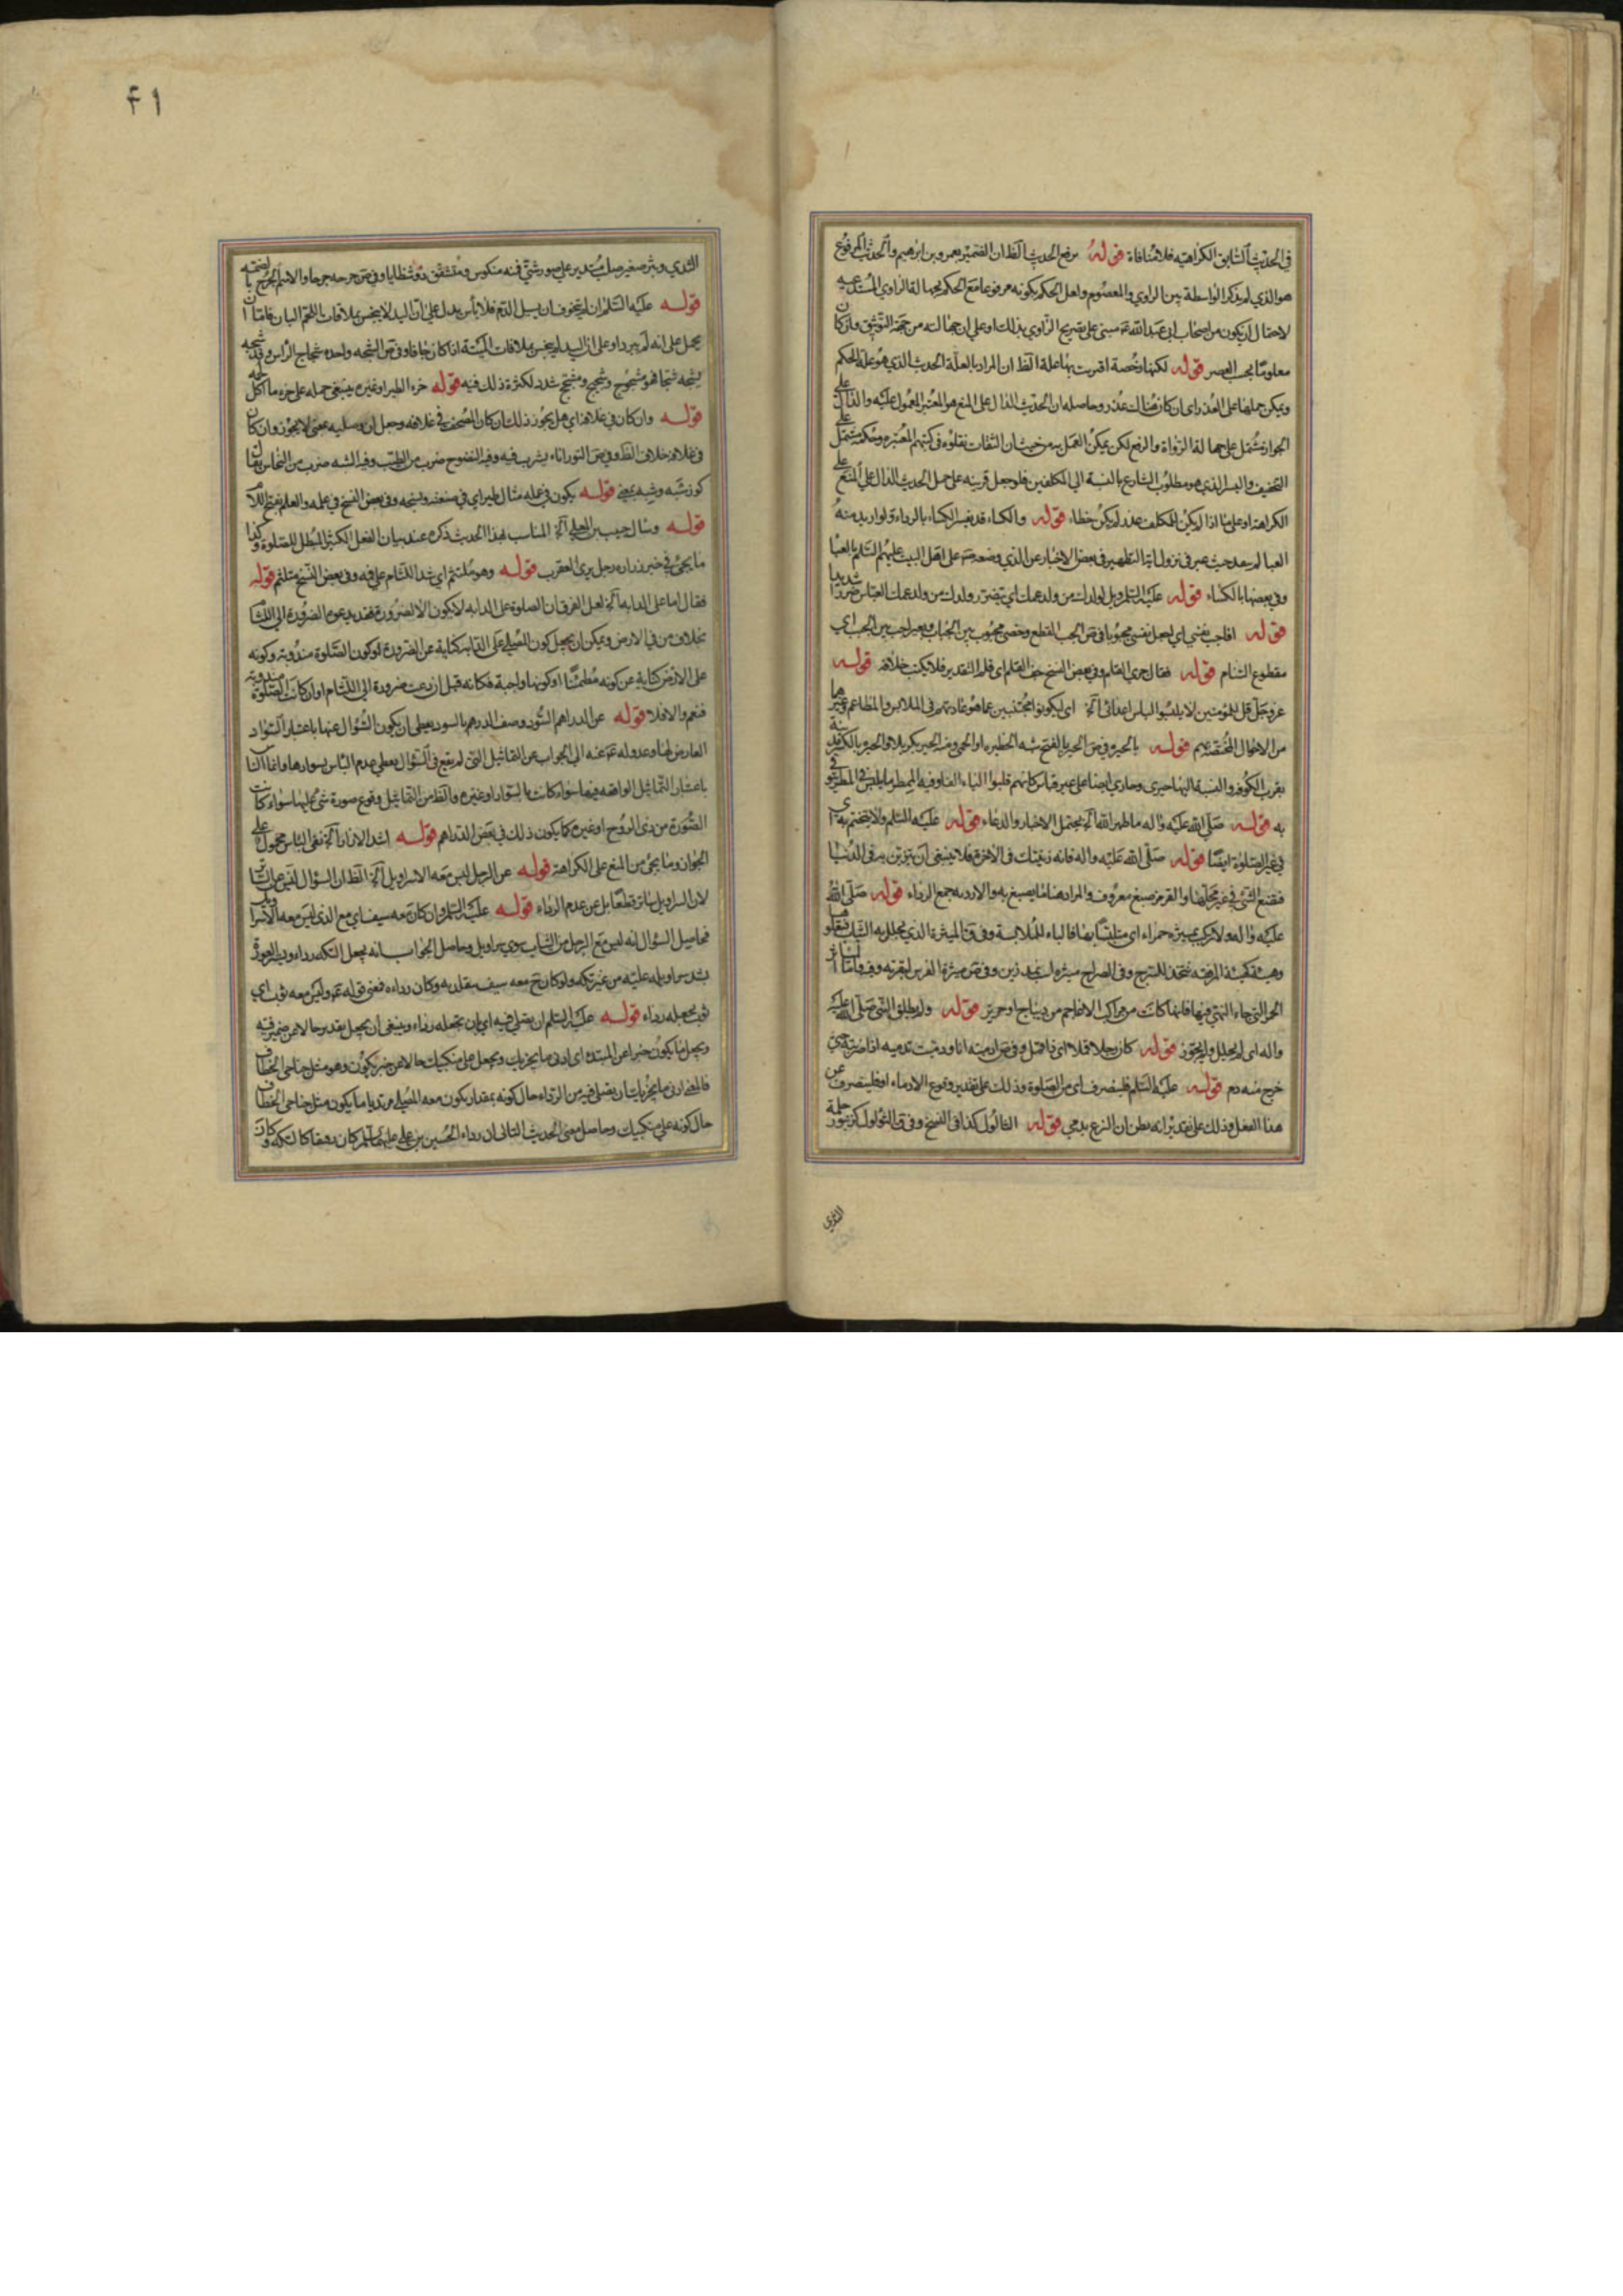 في الحديث السابق الكراهيه فلا منافاة قوله برفع الحديث الظ ان الضمير لعمرو بن ابرهيم والحديث المرفوع
هو الذي لم يذكر الواسطة بين الراوي والمعصوم ولعل الحكم بكونه مرفوعا مع الحكم بجهالة الراوي المستند عنه
لاحتمال ان يكون من اصحاب ابي عبد الله عم مبني على تصريح الراوي بذلك او على ان جهالته من جهة التوثيق وان كان
معلوما بحسب العصر قوله لكنها رخصة اقترنت بها علة الظ ان المراد بالعلة الحديث الذي هو علة الحكم
ويمكن حملها على العذر اي ان كان هناك عذر وحاصله ان الحديث الدال على المنع هو المعتبر المعمول عليه والدال على
الجواز مشتمل على جهالة الرواة والرفع لكن يمكن العمل به من حيث ان الثقات نقلوه في كتبهم المعتبره وحكمه مشتمل على
التخفيف واليسر الذي هو مطلوب الشارع بالنسبة الى المكلفين فلو جعل قرينه على حمل الحديث الدال على المنع على
الكراهة او على ما اذا لم يكن للمكلف عذر لم يكن خطاء قوله والكساء قد يفسر الكساء بالرداء ولو اريد منه
العبا لم يبعد حيث عبر في نزول اية التطهير في بعض الاخبار عن الذي وضعه على اهل البيت عليهم السلم بالعبا
وفي بعضها بالكساء قوله عليه السلم ويل لولدك من ولد عمك اي يتضرر ولدك من ولد عمك العباس ضررا شديدا
قوله افاجب نفسي اي اجعل نفسي مجبوبا في ص الجب القطع وخصي مجبوب بين الجباب وبعير اجب بين الجب اي
مقطوع السنام قوله فقال جرى القلم وفي بعض النسخ جف القلم اي قلم التقدير فلا يكتب خلافه قوله
عز وجل قل للمؤمنين لا يلبسوا لباس اعدائي آه اي ليكونوا مجتنبين عما هو عادتهم في الملابس والمطاعم وغيرها
من الاحوال المختصة بهم قوله بالحيره في ص الحير بالفتح شبه الحظيره او الحمى ومنه الحير بكربلا والحيره بالكسر مدينة
بقرب الكوفه والنسبة اليها حيرى وحاري ايضا على غير قياس كانهم قلبوا الياء الفا وفيه الممطر ما يلبس في المطر يتوقى
به قوله صلى الله عليه واله ما طهر الله آه يحتمل الاخبار والدعاء قوله عليه السلم ولا يتختم به اي
في غير الصلوة ايضا قوله صلى الله عليه واله فانه زينتك في الاخرة فلا ينبغي ان تتزين به في الدنيا
فتضع الشئ في غير محلها والقرمز صبغ معروف والمراد هنا ما يصبغ به والارديه جمع الرداء قوله صلى الله
عليه واله ولا تركب بميثره حمراء اي متلبسا بها فالباء للملابسة وفي ق الميثرة الذي يجلل به الثياب فتعلوها
وهيئة كهيئة المرفقه تتخذ للسرج وفي الصراح ميثره نمد زين وفي ص ميثرة الفرس لبدته واما المياثر
الحمر التي جاء النهي فيها فانها كانت من مراكب الاعاجم من ديباج او حرير قوله ولم يطلق النبي صلى الله عليه
واله اي لم يحلل ولم يجوز قوله كان رجلا دملا اي ذا دمل وفي ص ادميته انا ودميته تدميه اذا ضربته حتى
خرج منه دم قوله عليه السلم فلينصرف اي من الصلوة وذلك على تقدير وقوع الادماء او فلينصرف عن
هذا الفعل وذلك على تقدير انه يظن ان النزع يدمي قوله الثالول كذا في النسخ وفي ق الثؤلول كزنبور حلمة
الثدي
٤١
الثدي وبثر صغير صلب مستدير على صور شتى فمنه منكوس ومتشقق ذو شظايا وفي ص جرحه جرحا والاسم الجرح بالضم
قوله عليه السلم ان لم يتخوف ان يسيل الدم فلا باس يدل على ان اليد لا ينجس بملاقات اللحم البائن فاما ان
يحمل على انه لم يبرد او على ان اليد لم ينجس بملاقات الميتة اذا كان جافا وفي ص الشجه واحده شجاج الراس وقد شجه
يشجه شجا فهو مشجوج وشجيج ومشجج شدد لكثرة ذلك فيه قوله خرء الطير او غيره ينبغي حمله على خرء ما اكل لحمه
قوله وان كان في غلافه اي هل يجوز ذلك ان كان المصحف في غلافه وجعل ان وصليه بمعنى لا يجوز وان كان
في غلافه خلاف الظ وفي ص التور اناء يشرب فيه وفيه النضوح ضرب من الطيب وفيه الشبه ضرب من النحاس يقال
كوز شبه وشبه بمعنى قوله يكون في عمله مثال طير اي في صنعته ونسجه وفي بعض النسخ في علمه والعلم بفتح اللام
قوله وسال حبيب بن المعلى آه المناسب لهذا الحديث ذكره عند بيان الفعل الكثير المبطل للصلوة وكذا
ما يجئ في خبر زراره رجل يرى العقرب قوله وهو متلثم اي شد اللثام على فيه وفي بعض النسخ متلثم قوله
فقال اما على الدابه آه لعل الفرق ان الصلوة على الدابه لا يكون الا لضرورة فقد يدعوه الضرورة الى اللثام
بخلاف من في الارض ويمكن ان يجعل كون المصلي على الدابه كناية عن الضرورة او كون الصلوة مندوبة وكونه
على الارض كناية عن كونه مطمئنا او كونها واجبة فكانه قيل ان دعت ضرورة الى اللثام او ان كانت الصلوة مندوبة
فنعم والا فلا قوله عن الدراهم السود وصف الدرهم بالسود يعطي ان يكون السؤال عنها باعتبار السواد
العارض لها وعدوله عم عنه الى الجواب عن التماثيل التي لم يقع في السؤال يعطي عدم الباس بسوادها وانما الباس
باعتبار التماثيل الواقعه فيها سواء كانت بالسواد او غيره والظ من التماثيل وقوع صورة شئ عليها سواء كانت
الصورة من ذي الروح او غيره كما يكون ذلك في بعض الدراهم قوله اشد الازار آه نفي الباس محمول على
الجواز وما يجئ من المنع على الكراهة قوله عن الرجل ليس معه الا سراويل آه الظ ان السؤال ليس عن الساتر
لان السراويل ساتر قطعا بل عن عدم الرداء قوله عليه السلم وان كان معه سيف اي مع الذي ليس معه الا سراويل
فحاصل السؤال انه ليس مع الرجل من الثياب سوى سراويل وحاصل الجواب انه يجعل التكه رداء
يشد سراويله عليه من غير تكه ولو كان ح معه سيف يتقلد به وكان رداءه فمعنى قوله عم وليس معه ثوب اي
ثوب يجعله رداء قوله عليه السلم ان يصلي فيه اي بان يجعله رداء وينبغي ان يجعل بقدر حالا عن ضمير فيه
ويجعل ما يكون خبرا عن المبتدء اي ادنى ما يجزيك ويجعل على منكبيك حالا عن ضمير يكون وهو مثل جناحي الخطاف
فالمعنى ادنى ما يجزيك ان يصلي فيه من الرداء حال كونه بمقدار يكون معه المصلي مرتديا ما يكون مثل جناحي الخطاف
حال كونه على منكبيك وحاصل معنى الحديث الثاني ان رداء الحسين بن علي عليهما السلم كان دقيقا كالتكه وكان